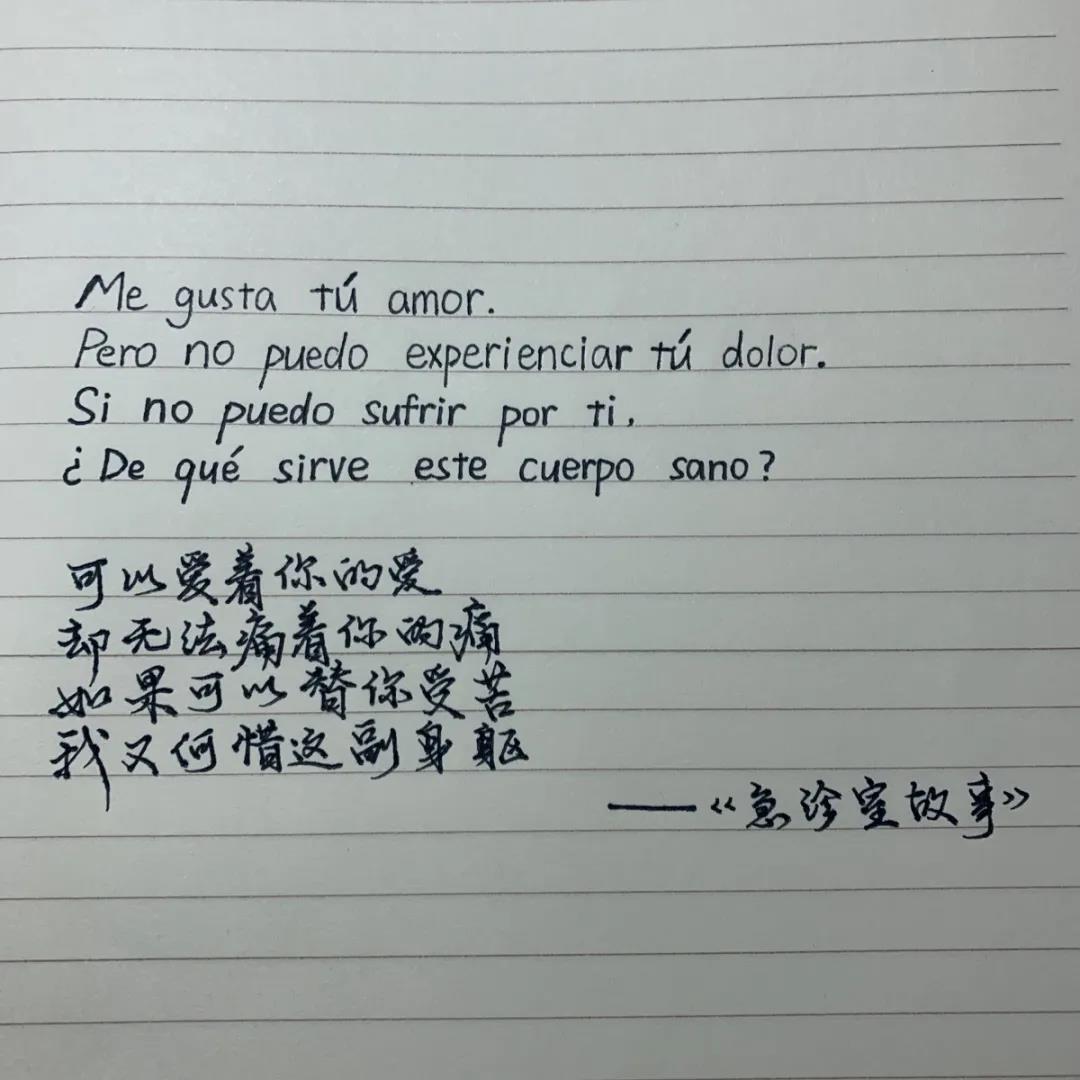 Me gusta tú amor.
Pero no puedo experienciar tú dolor.
Si no puedo sufrir por ti,
¿De qué sirve este cuerpo sano?
可以爱着你的爱
却无法痛着你的痛
如果可以替你受苦
我又何惜这副身躯
——《急诊室故事》